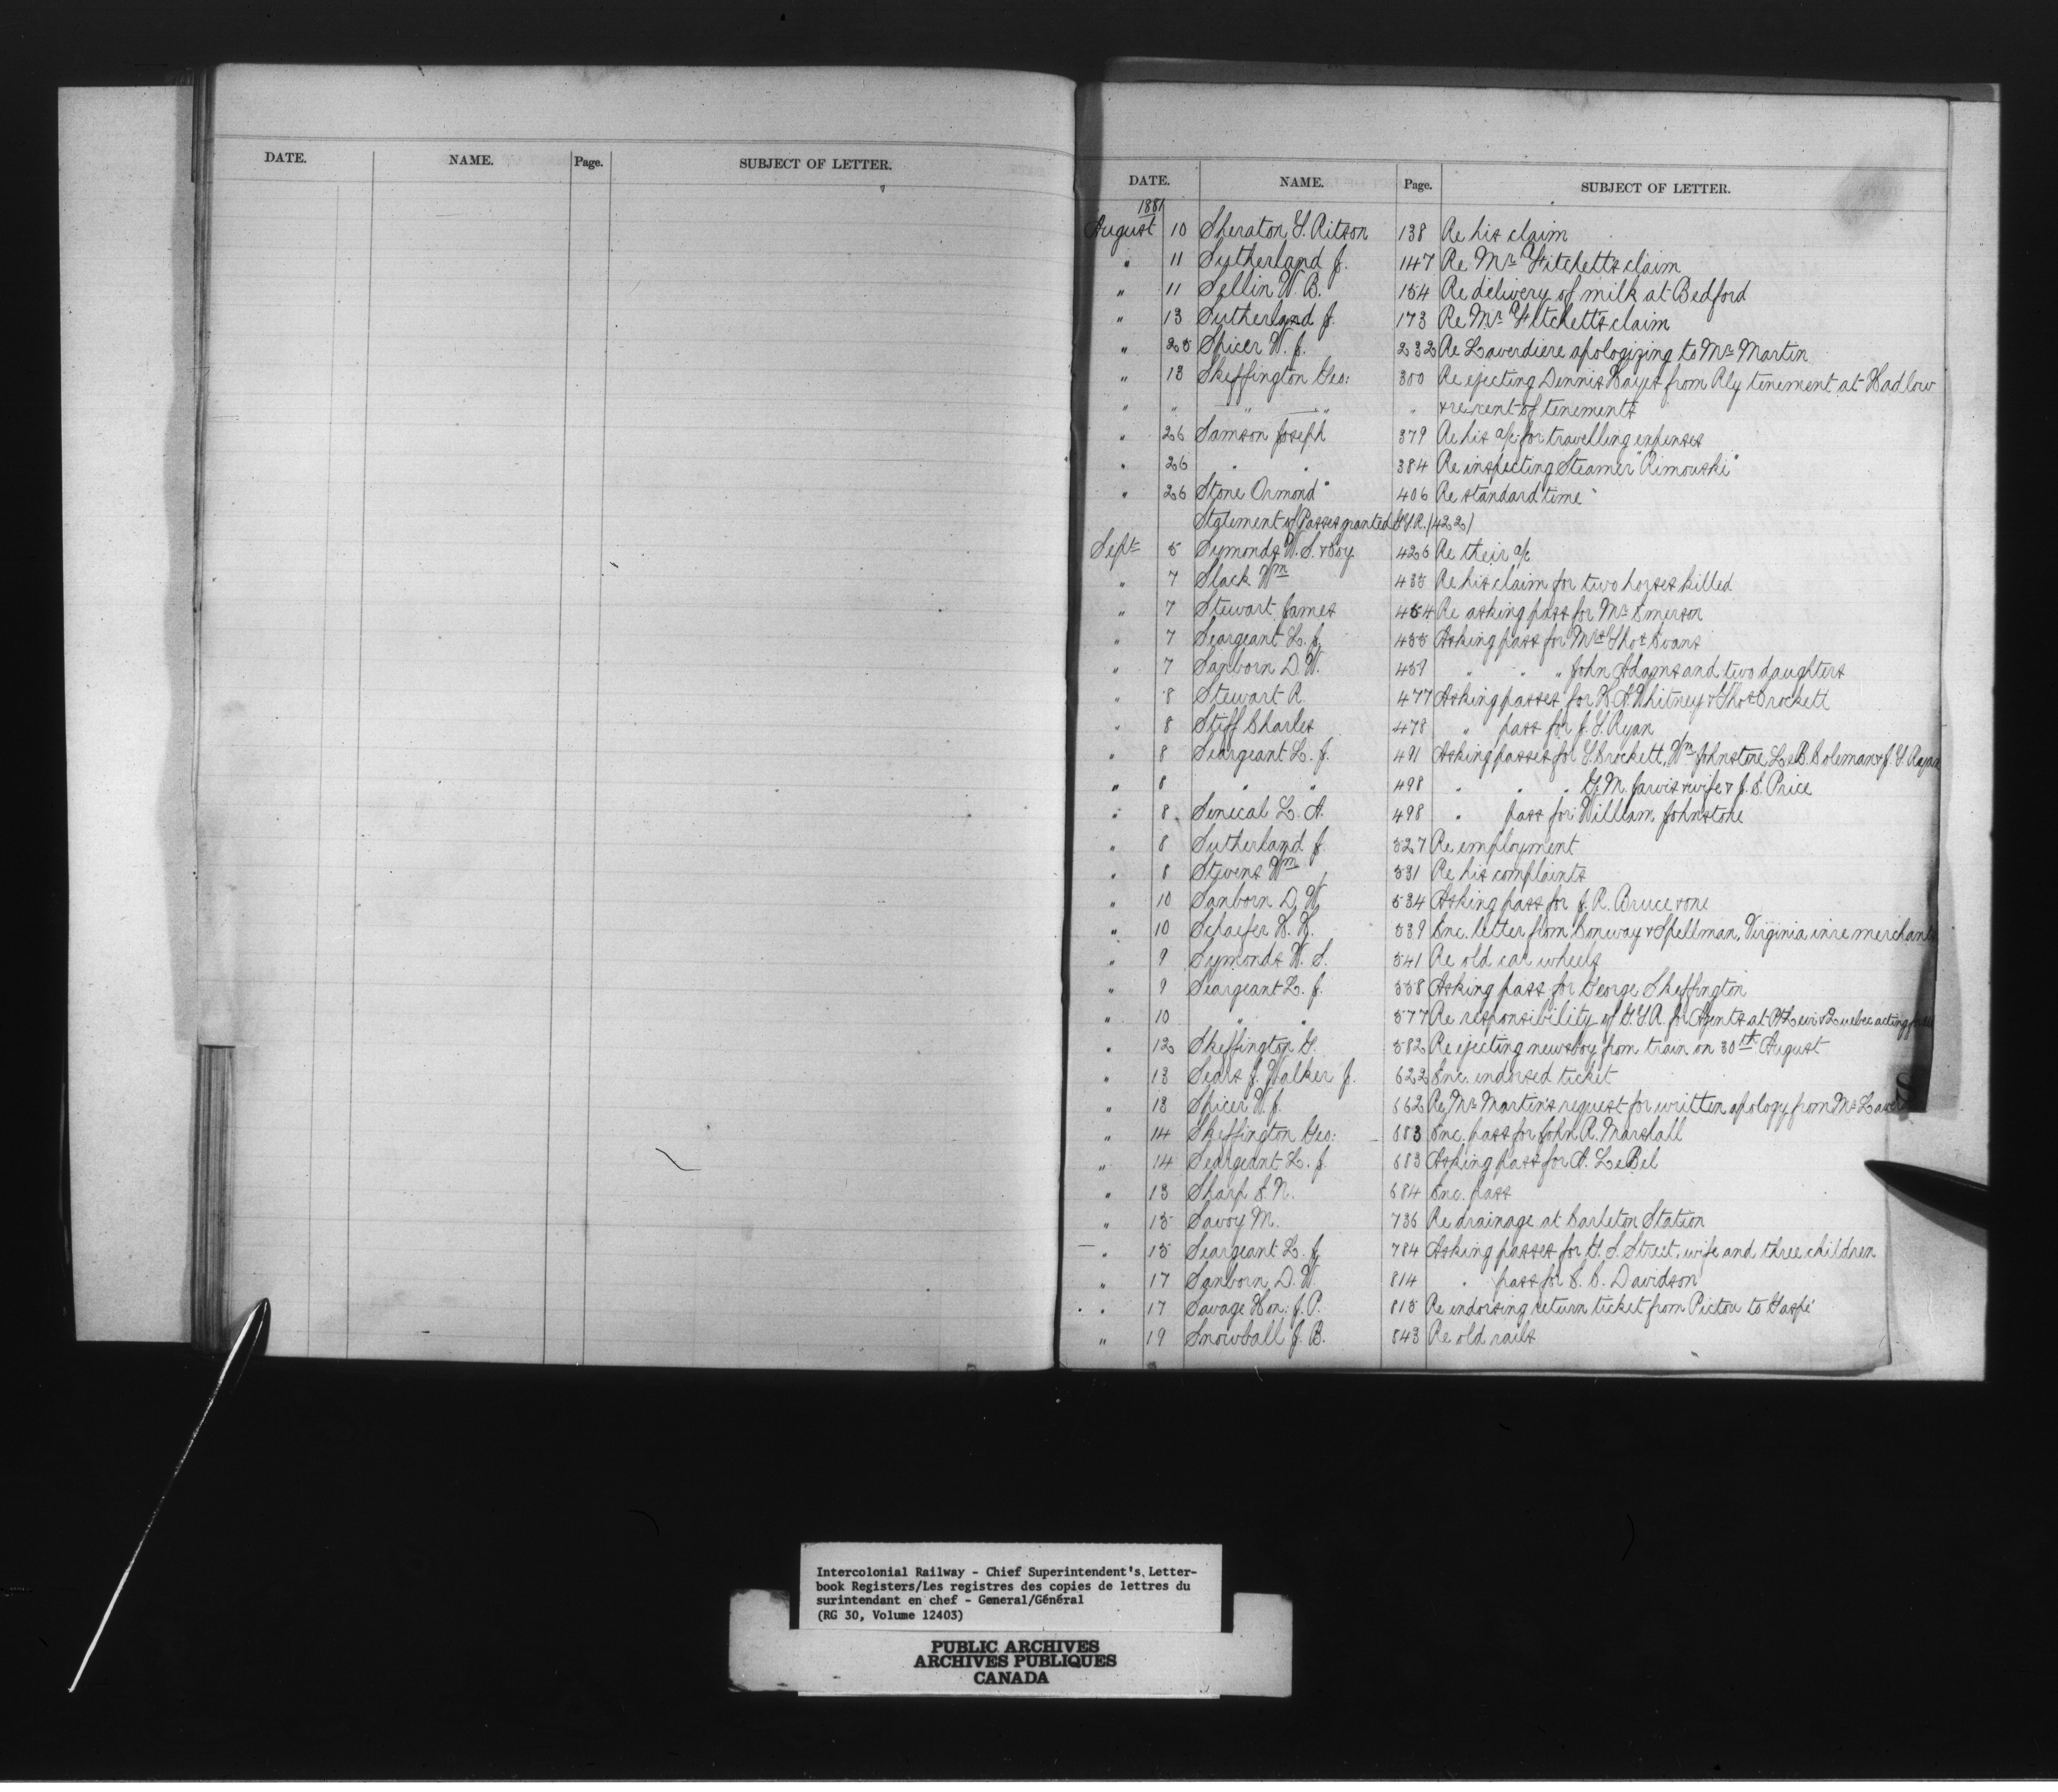 DATE. NAME. Page. SUBJECT OF LETTER.
DATE. NAME. Page. SUBJECT OF LETTER.
1881
August 10 Sheraton G. Ritson 138 Re his claim
" 11 Sutherland J. 147 Re Mr. Fitchett's claim
" 11 Sellin W. B. 154 Re delivery of milk at Bedford
" 13 Sutherland J. 173 Re Mr. Fitchett's claim
" 25 Spicer W. J. 232 Re Laverdiere apologizing to Mr. Martin
" 13 Skeffington Geo: 300 Re ejecting Dennis Hayes from Rly tenement at Hadlow
" " " " " & re rent of tenements
" 26 Samson Joseph 379 Re his a/c for travelling expenses
" 26 " " 384 Re inspecting Steamer "Rimouski"
" 26 Stone Ormond 406 Re standard time
Statement of Passes granted G.T.R. (422)
Sept 5 Symonds W. S. & Coy 426 Re their a/c
" 7 Slack Wm 435 Re his claim for two horses killed
" 7 Stewart James 454 Re asking pass for Mr. Emerson
" 7 Seargeant L. J. 455 Asking pass for Mrs Thos Evans
" 7 Sanborn D. W. 459 " " " John Adams and two daughters
" 8 Stewart R. 477 Asking passes for H. A. Whitney & Thos Crockett
" 8 Stiff Charles 478 " pass for J. G. Ryan
" 8 Seargeant L. J. 491 Asking passes for G. Crockett, Wm Johnstone, L. B. Coleman & J. G. Ryan
" 8 " " 498 " " " G. M. Jarvis & wife & J. E. Price
" 8 Senecal L. A. 498 " pass for William Johnstone
" 8 Sutherland J. 527 Re employment
" 8 Stevens Wm 531 Re his complaints
" 10 Sanborn D. W. 534 Asking pass for J. R. Bruce & one
" 10 Schaefer H. H. 539 Enc. letter from Conway & Spellman, Virginia in re
" 9 Symonds W. S. 541 Re old car wheels
" 9 Seargeant L. J. 558 Asking pass for George Skeffington
" 10 " " 577 Re responsibility of G.T.R. for Agents at Pt Levi & Quebec acting
" 12 Skeffington G. 582 Re ejecting newsboy from train on 30th August
" 13 Sears J. Walker J. 622 Enc. endorsed ticket
" 13 Spicer W. J. 662 Re Mr. Martin's request for written apology from Mr.
" 14 Skeffington Geo: 683 Enc. pass for John R. Marshall
" 14 Seargeant L. J. 683 Asking pass for A. LeBel
" 13 Sharp S. N. 684 Enc. pass
" 15 Savoy M. 736 Re drainage at Carleton Station
" 15 Seargeant L. J. 784 Asking passes for G. S. Street, wife and three children
" 17 Sanborn D. W. 814 " pass for E. C. Davidson
" 17 Savage Hon: J. P. 815 Re endorsing return ticket from Pictou to Gaspé
" 19 Snowball J. B. 843 Re old rails
Intercolonial Railway - Chief Superintendent's Letter-
book Registers/Les registres des copies de lettres du
surintendant en chef - General/Général
(RG 30, Volume 12403)
PUBLIC ARCHIVES
ARCHIVES PUBLIQUES
CANADA